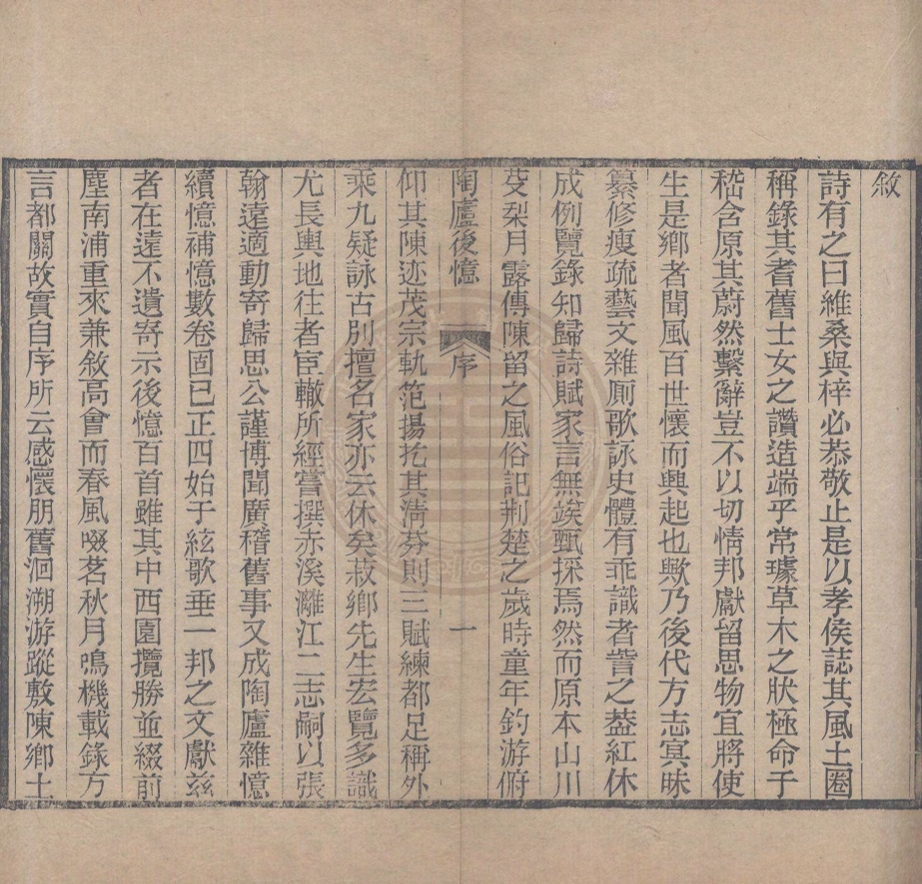 敘
詩有之曰維桑與梓必恭敬止是以孝侯誌其風土圈
稱錄其耆舊士女之讚造端乎常璩草木之狀極命于
嵇含原其蔚然繫辭豈不以切情邦獻留思物宜將使
生是鄉者聞風百世懷而興起也歟乃後代方志冥昧
纂修瘦疏藝文雜厠歌詠史體有乖識者訾之葢紅休
成例覽錄知歸詩賦家言無竢甄採焉然而原本山川
芟梨月露傳陳留之風俗記荆楚之歲時童年釣游俯
陶廬後憶 序 一
仰其陳迹茂宗軌范揚扢其淸芬則三賦練都足稱外
乘九疑詠古別擅名家亦云休矣菽鄉先生宏覽多識
尤長輿地往者宦轍所經嘗撰赤溪灕江二志嗣以張
翰遠適動寄歸思公謹博聞廣稽舊事又成陶廬雜憶
續憶補憶數卷固已正四始于絃歌垂一邦之文獻兹
者在遠不遺寄示後憶百首雖其中西園攬勝並綴前
塵南浦重來兼敘高會而春風啜茗秋月鳴機載錄方
言都關故實自序所云感懷朋舊洄溯游蹤敷陳鄉土